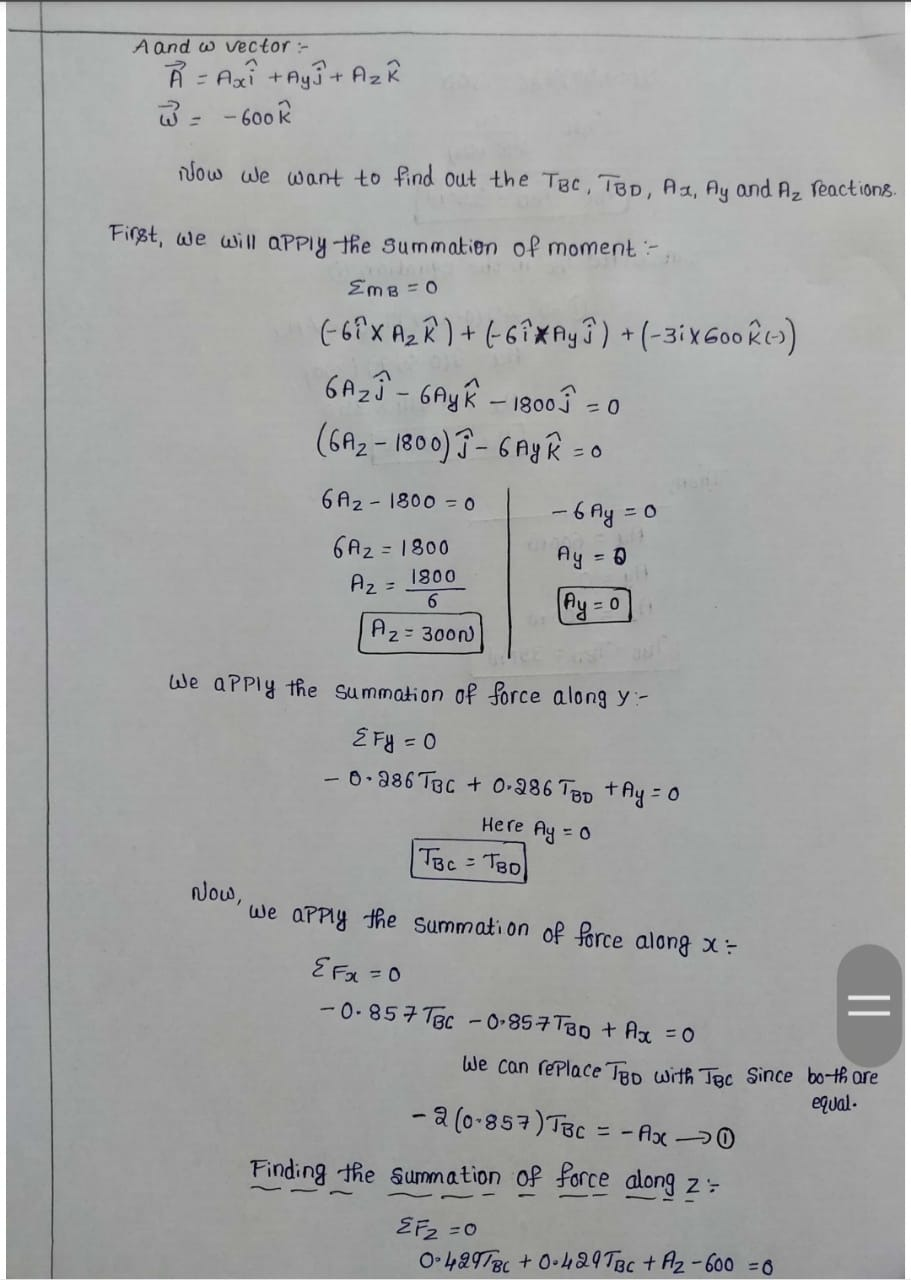 A and ω vector :-
A⃗ = Axî + Ayĵ + Azk̂
ω⃗ = -600k̂
Now we want to find out the TBC, TBD, Ax, Ay and Az reactions.
First, we will apply the summation of moment :-
ΣmB = 0
(-6î x Azk̂) + (-6î x Ayĵ) + (-3i x 600k̂(-))
6Azĵ - 6Ayk̂ - 1800ĵ = 0
(6Az - 1800)ĵ - 6Ayk̂ = 0
6Az - 1800 = 0
6Az = 1800
Az = 1800/6
Az = 300N
-6Ay = 0
Ay = 0
Ay = 0
We apply the summation of force along y:-
ΣFy = 0
-0.286TBC + 0.286TBD + Ay = 0
Here Ay = 0
TBC = TBD
Now, we apply the summation of force along x:-
ΣFx = 0
-0.857TBC - 0.857TBD + Ax = 0
We can replace TBD with TBC since both are
equal.
-2(0.857)TBC = -Ax →①
Finding the summation of force along z:-
ΣFz = 0
0.429TBC + 0.429TBC + Az - 600 = 0